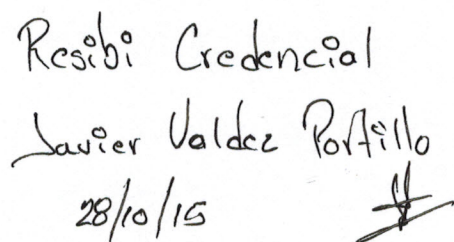 Resibi Credencial
Javier Valdez Portillo
28/10/15